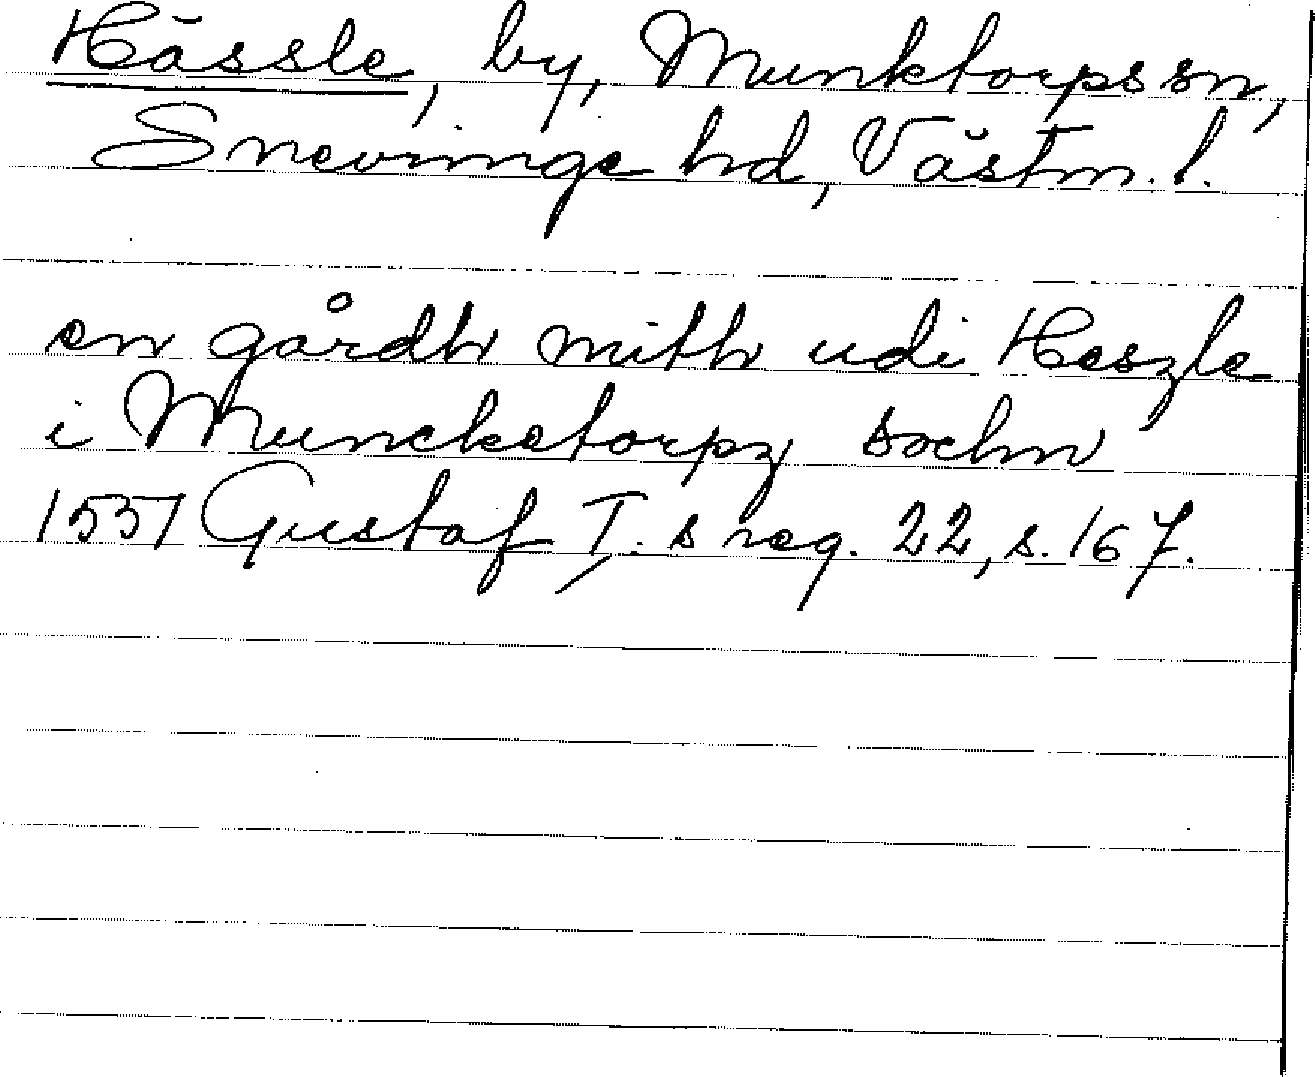 Hässle, by, Munktorps sn,
Snevringe hd, Västm. l.
en gårdh mith udi Heszle
i Munckatorpz sochn
1551 Gustaf I:s reg. 22, s. 167.